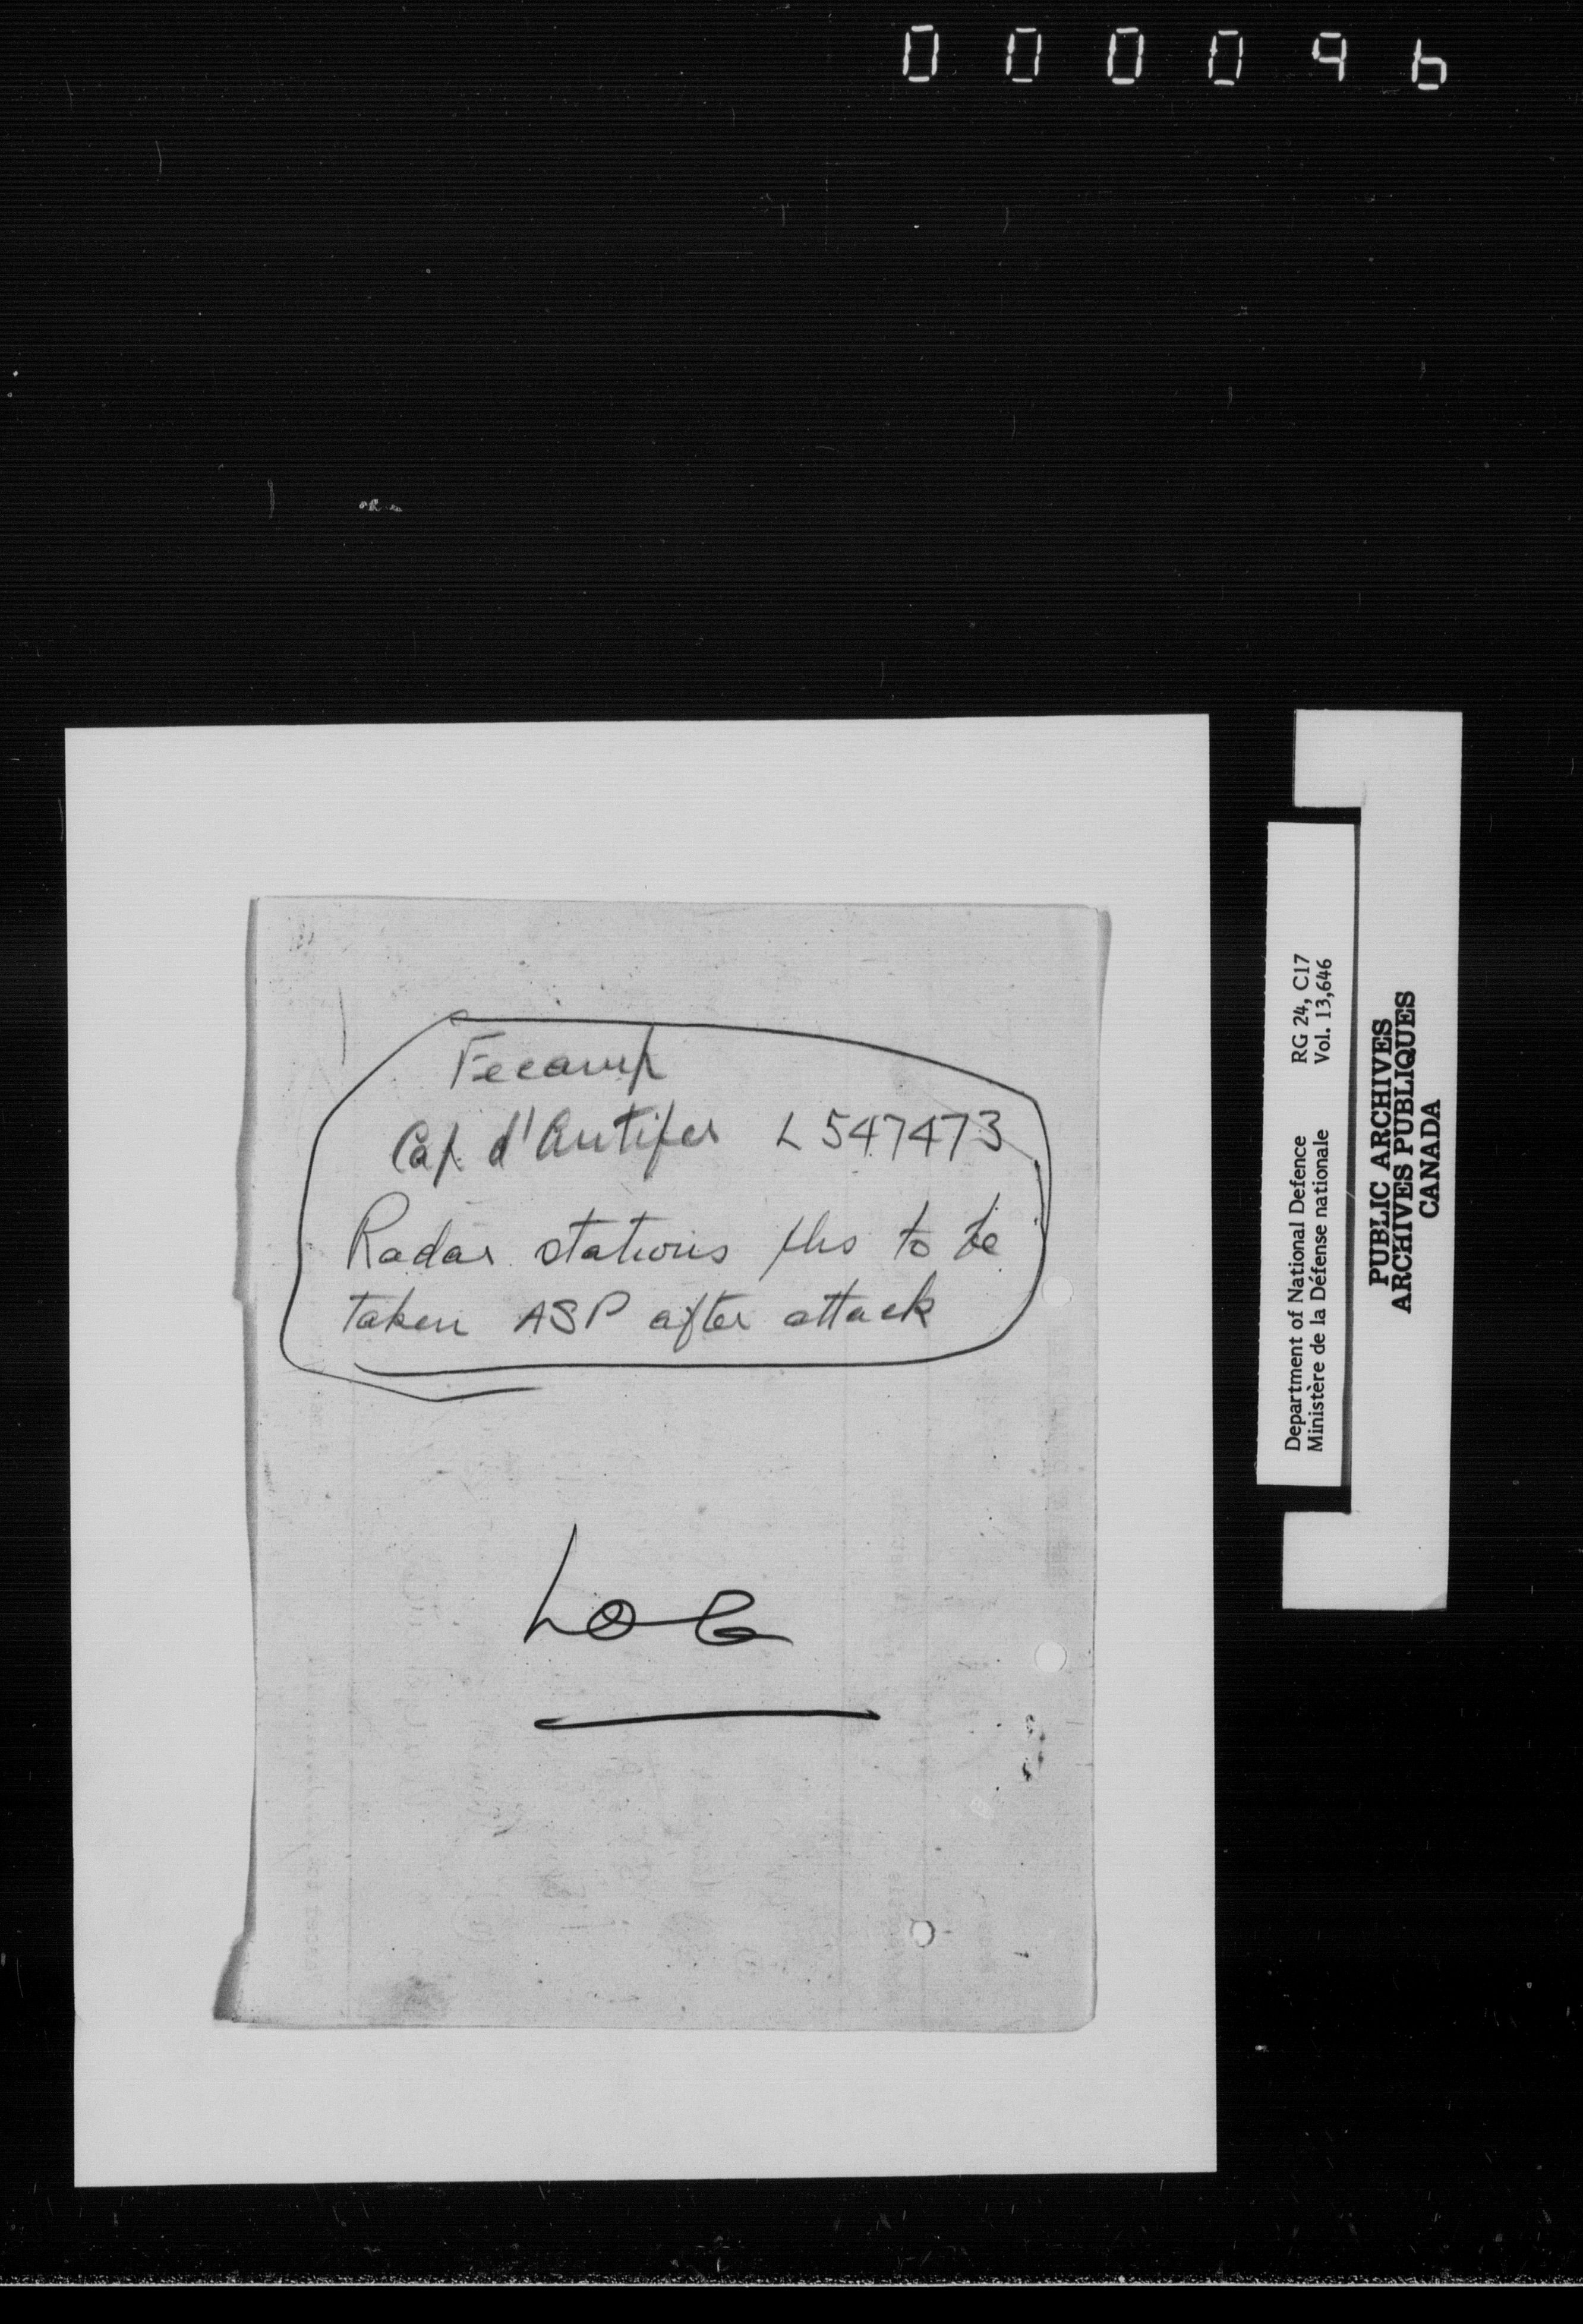 000096
Fecamp
Cap d'Antifer L 547473
Radar stations phs to be
taken ASP after attack
LOG
Department of National Defence RG 24, C17
Ministère de la Défense nationale Vol. 13,646
PUBLIC ARCHIVES
ARCHIVES PUBLIQUES
CANADA